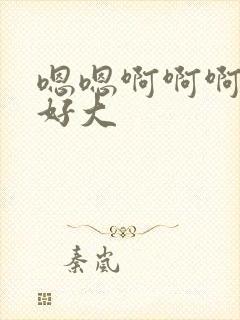 嗯嗯啊啊啊
好大
秦岚